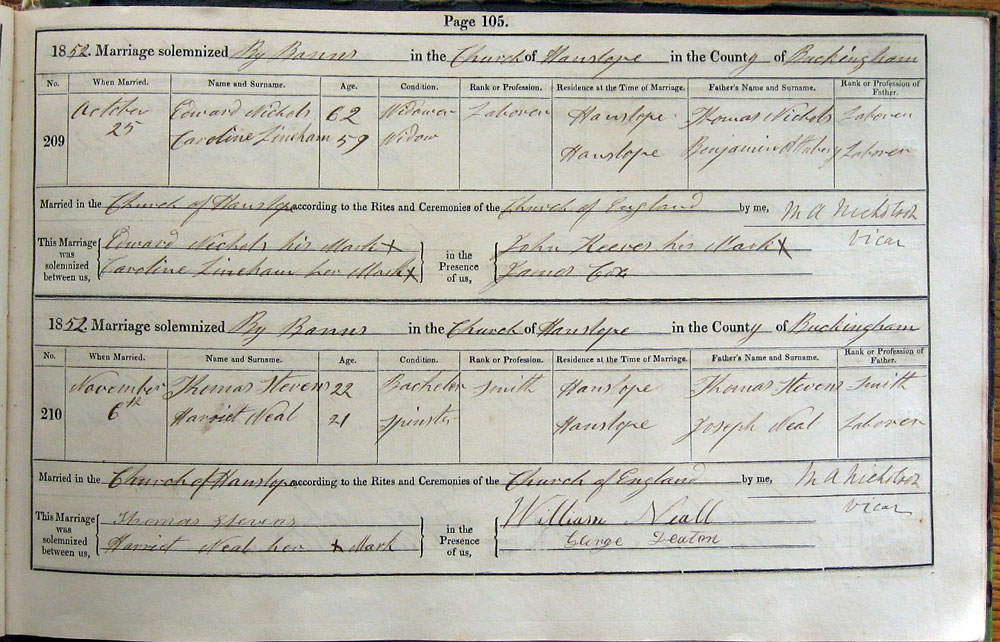 Page 105.
1852. Marriage solemnized By Banns in the Church of Hanslope in the County of Buckingham
No. When Married. Name and Surname. Age. Condition. Rank or Profession. Residence at the Time of Marriage. Father's Name and Surname. Rank or Profession of Father.
209 October 25 Edward Nichols 62 Widower Laborer Hanslope Thomas Nichols Laborer
Caroline Lineham 59 Widow Hanslope Benjamin Laborer
Married in the Church of Hanslope according to the Rites and Ceremonies of the Church of England by me, M A Nicholson
Vicar
This Marriage was solemnized between us, Edward Nichols his Mark X in the Presence of us, John Reeves his Mark X
Caroline Lineham her Mark X James Cox
1852. Marriage solemnized By Banns in the Church of Hanslope in the County of Buckingham
No. When Married. Name and Surname. Age. Condition. Rank or Profession. Residence at the Time of Marriage. Father's Name and Surname. Rank or Profession of Father.
210 November 6th Thomas Stevens 22 Bachelor Smith Hanslope Thomas Stevens Smith
Harriet Neal 21 Spinster Hanslope Joseph Neal Laborer
Married in the Church of Hanslope according to the Rites and Ceremonies of the Church of England by me, M A Nicholson
Vicar
This Marriage was solemnized between us, Thomas Stevens in the Presence of us, William Neall
Harriet Neal her X Mark George Deaton